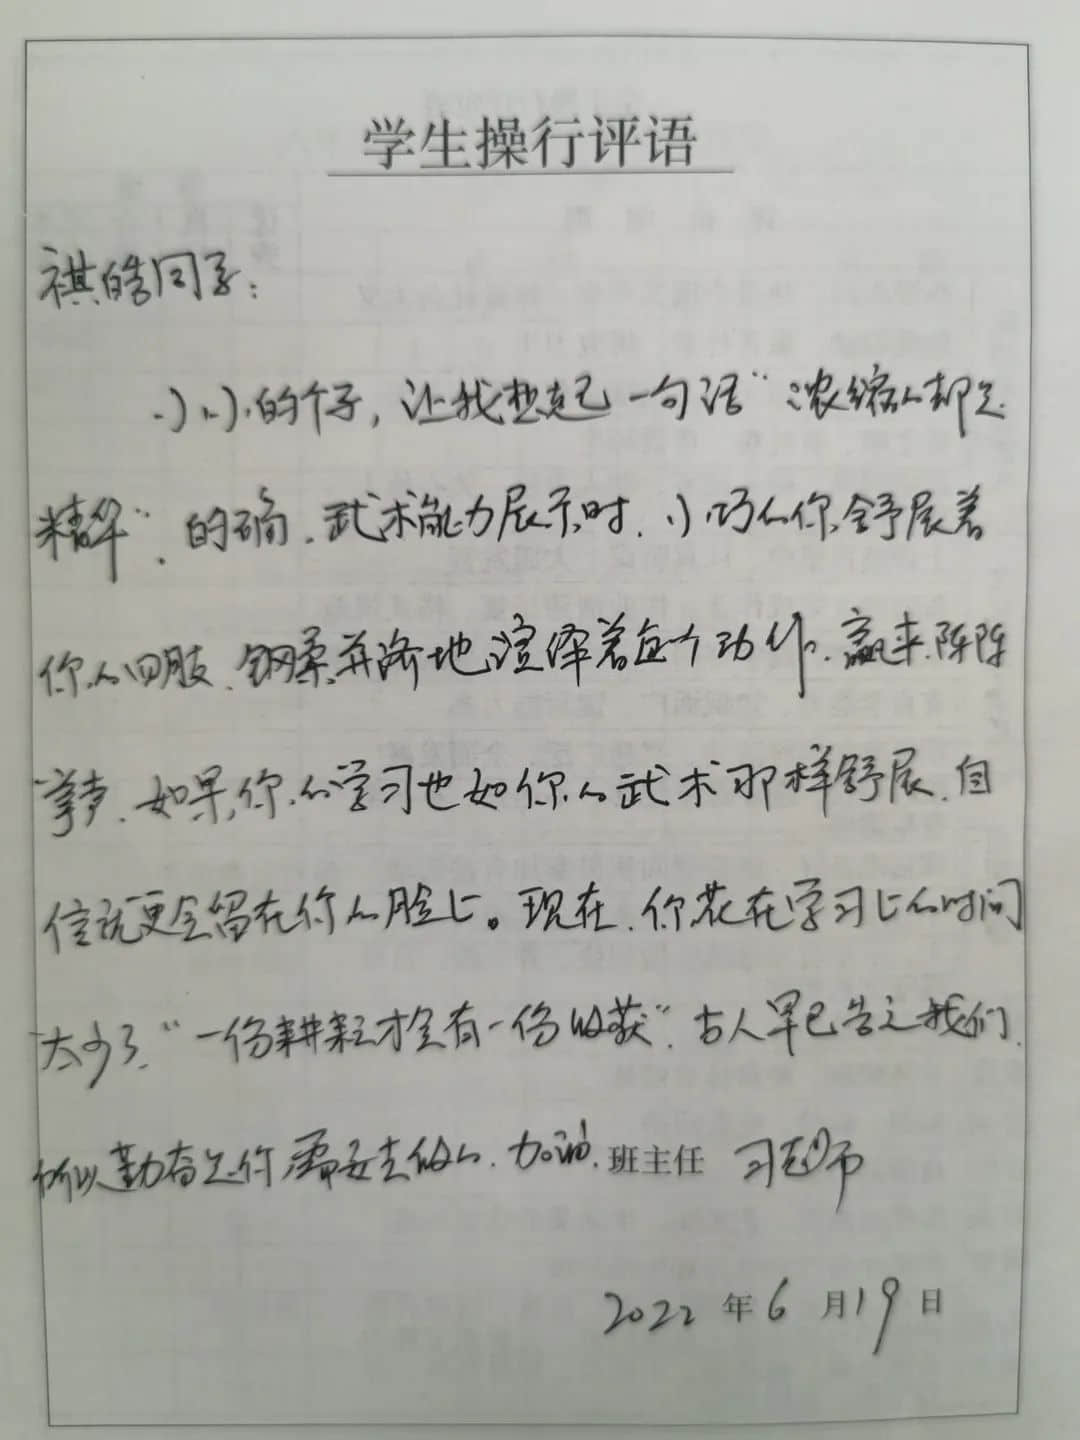 学生操行评语
祺皓同学：
小小的个子，让我想起一句话“浓缩的都是
精华”，的确，武术能力展示时，小巧的你舒展着
你的四肢，钢柔并济地渲绎着每个动作，赢来阵阵
掌声，如果你的学习也如你的武术那样舒展，自
信就更会留在你的脸上。现在，你花在学习上的时间
太少了，“一份耕耘才会有一份收获”，古人早已告之我们，
所以勤奋是你需要去做的，加油，班主任 习老师
2022年6月19日